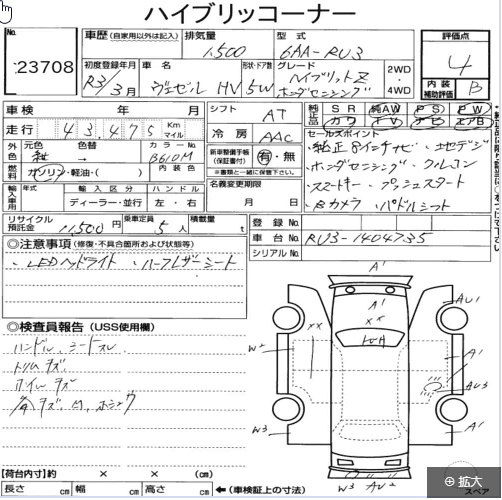 ハイブリッコーナー
No. 23708
車歴 (自家用以外は記入)
排気量 1.500
型式 6AA-RU3
評価点 4
内装補助評価 B
初度登録年月 R3年3月
車名 ヴェゼル HV
形状・ドア数 5W
グレード ハイブリッドZ ホンダセンシング
2WD・4WD
車検 年 月
走行 43,475 Km マイル
外色 元色 紺 → 色替
カラーNo. B610M
燃料 ガソリン・軽油・( )
内装色
輸入車用 年式
輸入区分 ディーラー・並行
ハンドル 左・右
シフト AT
冷房 AAC
新車整備手帳(保証書付) 有・無
※書類と一緒に保管下さい。
名義変更期限 月 日
純正品 SR 純AW PS PW
カワ TV ナビ エアB
セールスポイント
・純正8インチナビ・地デジ
・ホンダセンシング・クルコン
・スマートキー・プッシュスタート
・Bカメラ・パドルシフト
リサイクル預託金 11,500円
乗車定員 5人
積載量 t
登録No.
車台No. RU3-1404735
シリアルNo.
◎注意事項 (修復・不具合箇所および状態等)
・LEDヘッドライト ・ハーフレザーシート
◎検査員報告 (USS使用欄)
ハンドル、シートスレ
トリムキズ
ホイルキズ
A'
A'
××
××
AU1
W2
A'
AU3
W3
A'
W3 AU2
スペア
【荷台内寸】約 × × (cm)
長さ cm 幅 cm 高さ cm ←(車検証上の寸法)
拡大